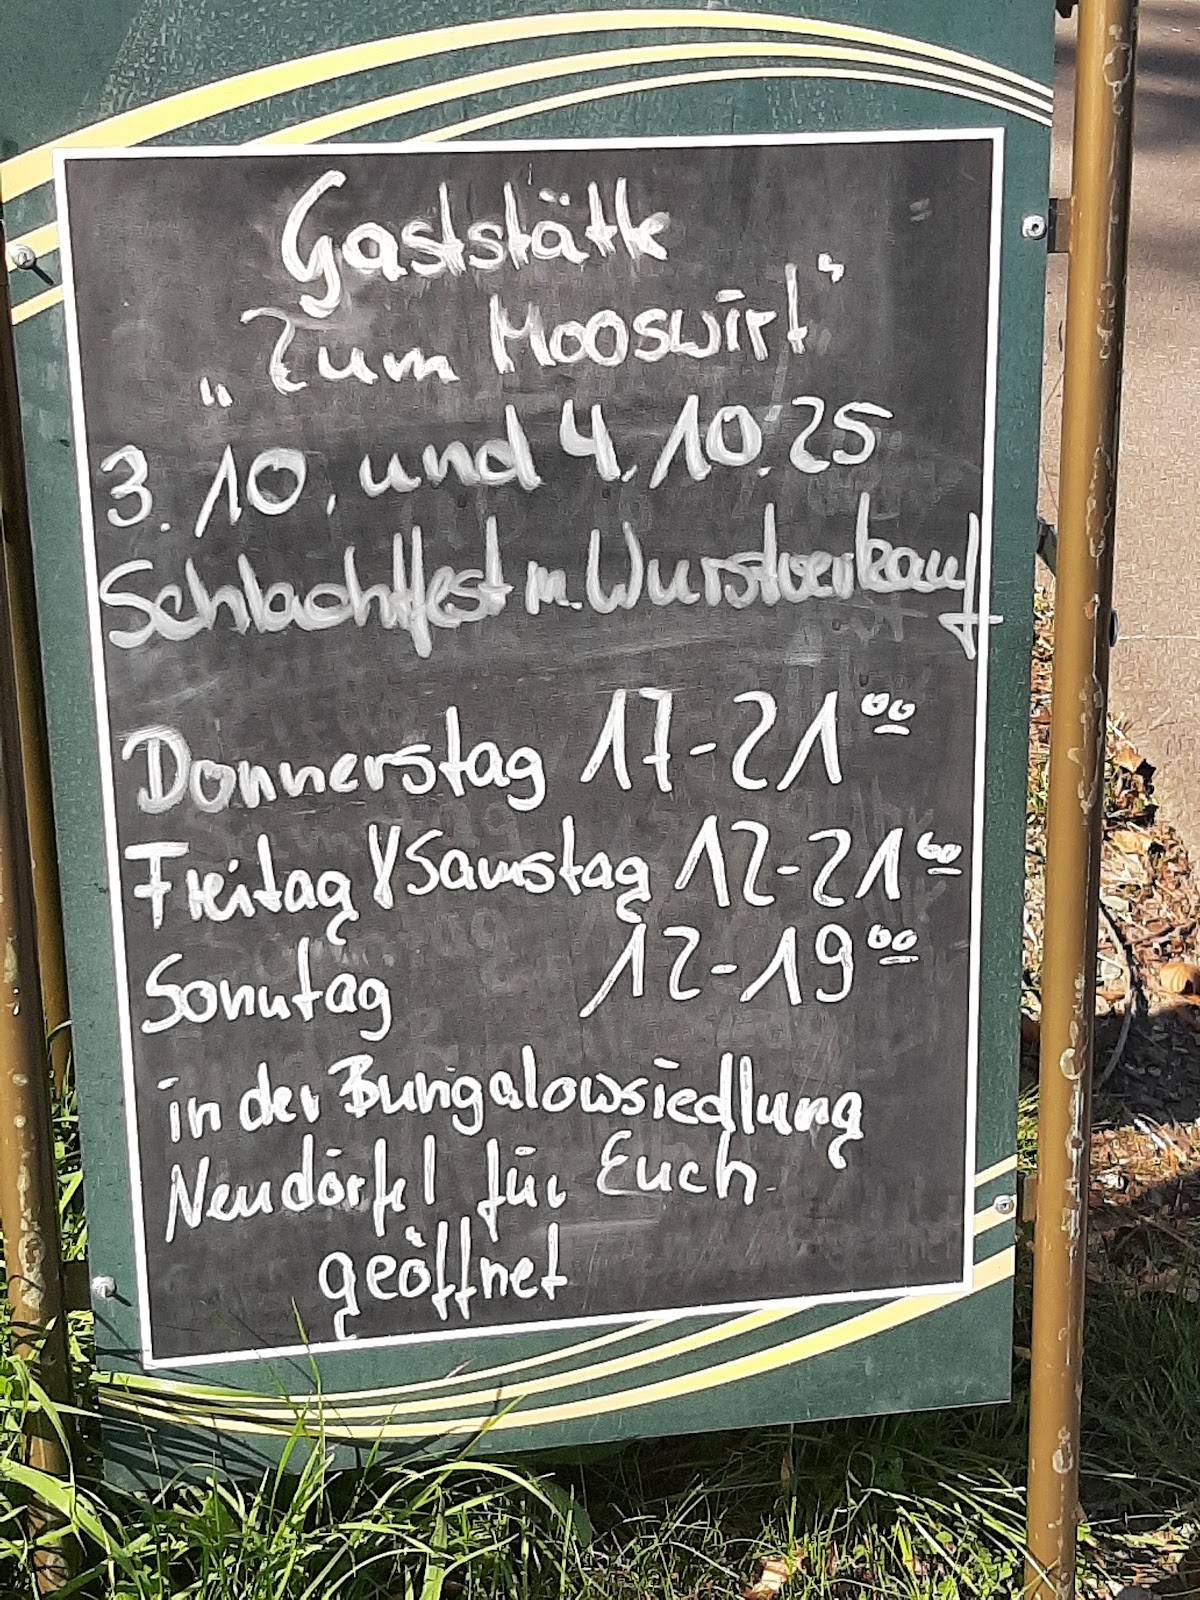 Gaststätte
„Zum Mooswirt“
3.10. und 4.10.25
Schlachtfest m. Wurstverkauf
Donnerstag 17-21⁰⁰
Freitag / Samstag 12-21⁰⁰
Sonntag 12-19⁰⁰
in der Bungalowsiedlung
Neudörfel für Euch
geöffnet